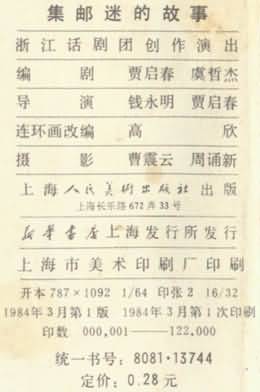 集邮迷的故事
浙江话剧团创作演出
编 剧 贾启春 虞哲杰
导 演 钱永明 贾启春
连环画改编 高 欣
摄 影 曹震云 周诵新
上海人民美術出版社 出版
上海长乐路672弄33号
新华書店上海发行所发行
上海市美术印刷厂印刷
开本787×1092 1/64 印张2 16/32
1984年3月第1版 1984年3月第1次印刷
印数 000,001——122,000
统一书号: 8081·13744
定价: 0.28 元